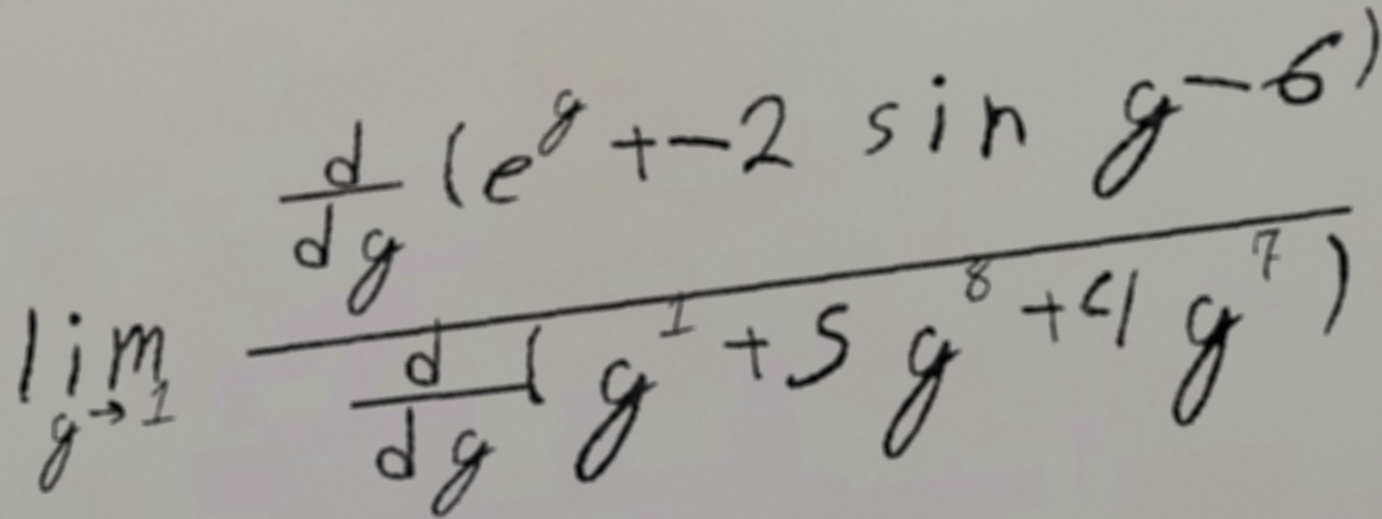 \lim_{g \to 1} \frac{\frac{d}{dg}(e^{g}+-2 \sin g-6)}{\frac{d}{dg}(g^{1}+5g^{8}+4g^{7})}